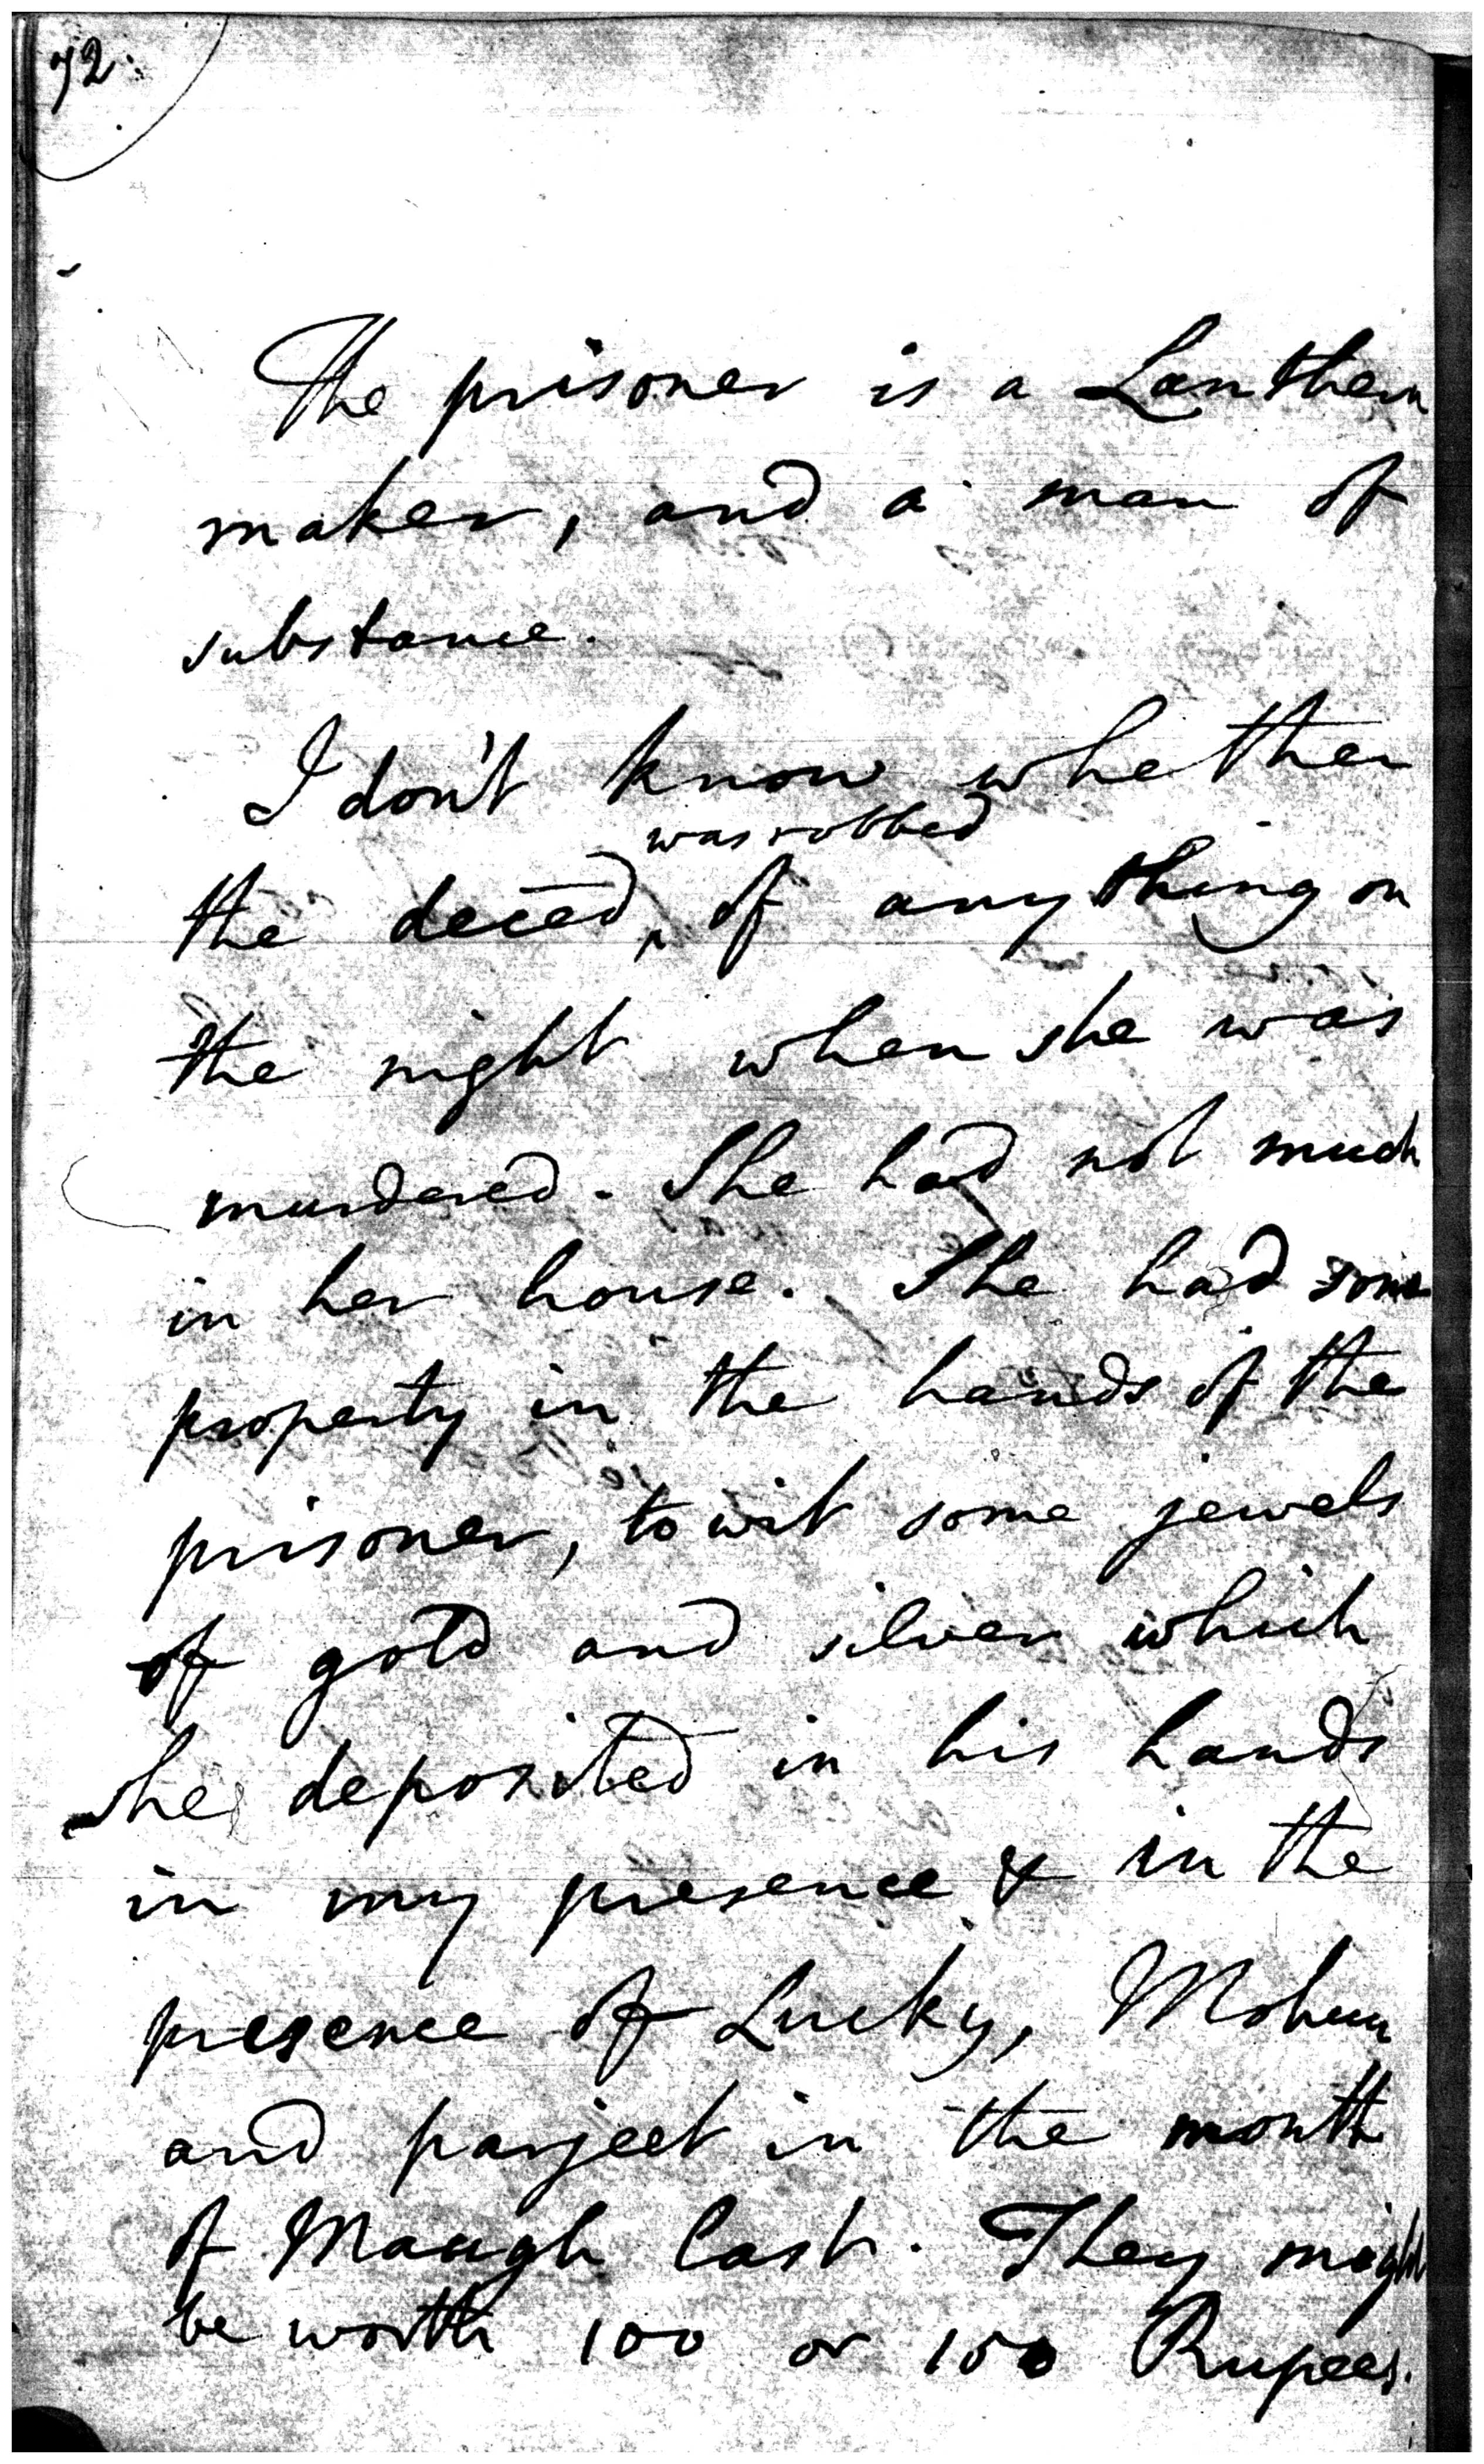 72.
The prisoner is a Lanthern
maker, and a man of
substance.
I don't know whether
was robbed
the deced, of anything on
the night when she was
murdered. She had not much
in her house. She had some
property in the hands of the
prisoner, to wit some jewels
of gold and silver which
she deposited in his hands
in my presence & in the
presence of Lucky, Mohun
and parjeet in the month
of Maugh last. They might
be worth 100 or 150 Rupees.